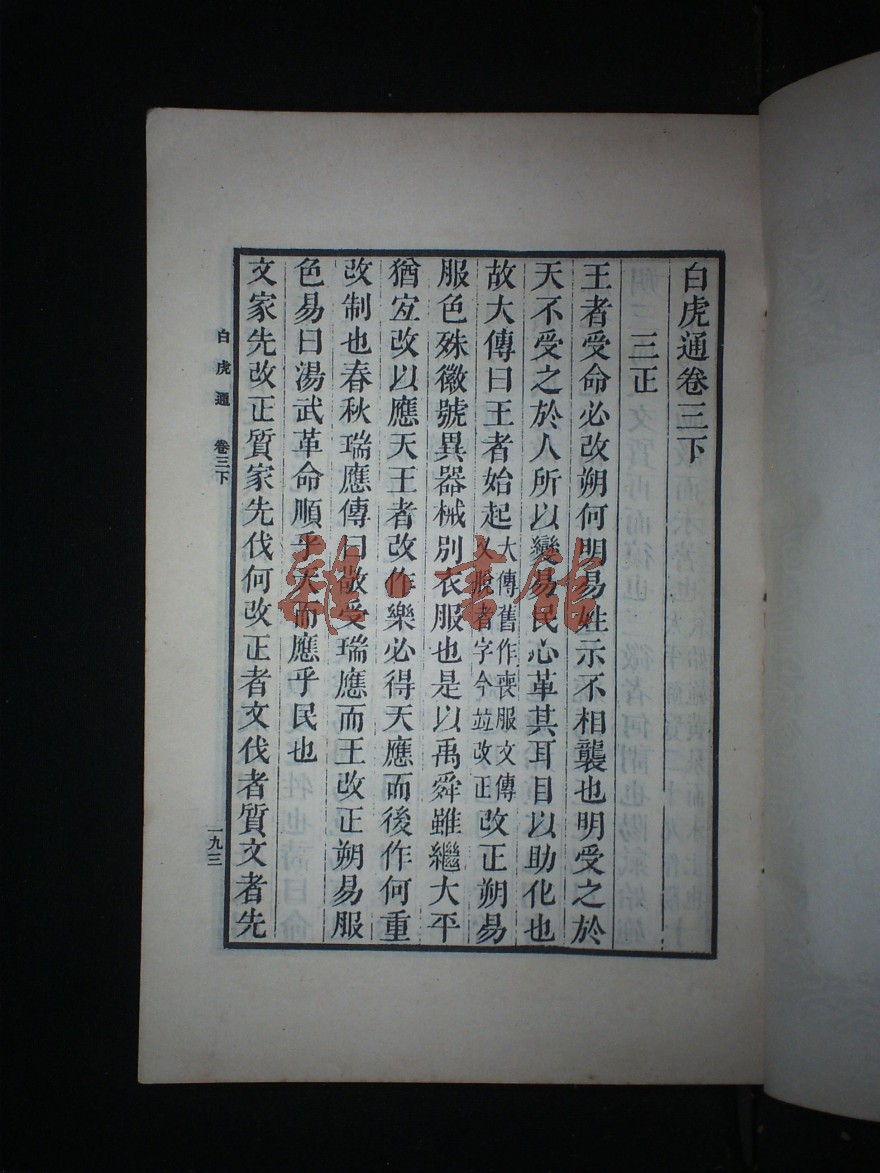 白虎通卷三下
三正
王者受命必改朔何明易姓示不相襲也明受之於
天不受之於人所以變易民心革其耳目以助化也
故大傳曰王者始起大傳舊作喪服文傳又脫者字今竝改正改正朔易
服色殊徽號異器械別衣服也是以禹舜雖繼大平
猶宐改以應天王者改作樂必得天應而後作何重
改制也春秋瑞應傳曰敬受瑞應而王改正朔易服
色易曰湯武革命順乎天而應乎民也
文家先改正質家先伐何改正者文伐者質文者先
白虎通 卷三下
一九三
雜·書館